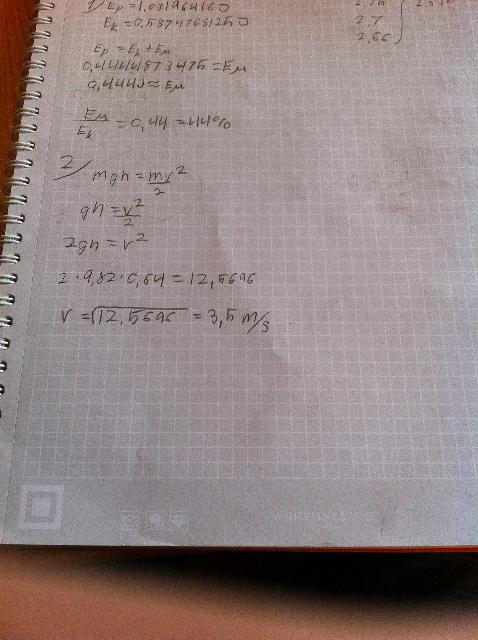 1) Ep = 1,031964160
Ek = 0,58747681250
2.7
2,66
Ep = Ek + Eμ
0,4444873475 = Eμ
Eμ/Ek = 0,44 = 44%
2/
mgh = mv²/2
gh = v²/2
2gh = v²
2 · 9,82 · 0,64 = 12,5696
v = √12,5696 = 3,5 m/s